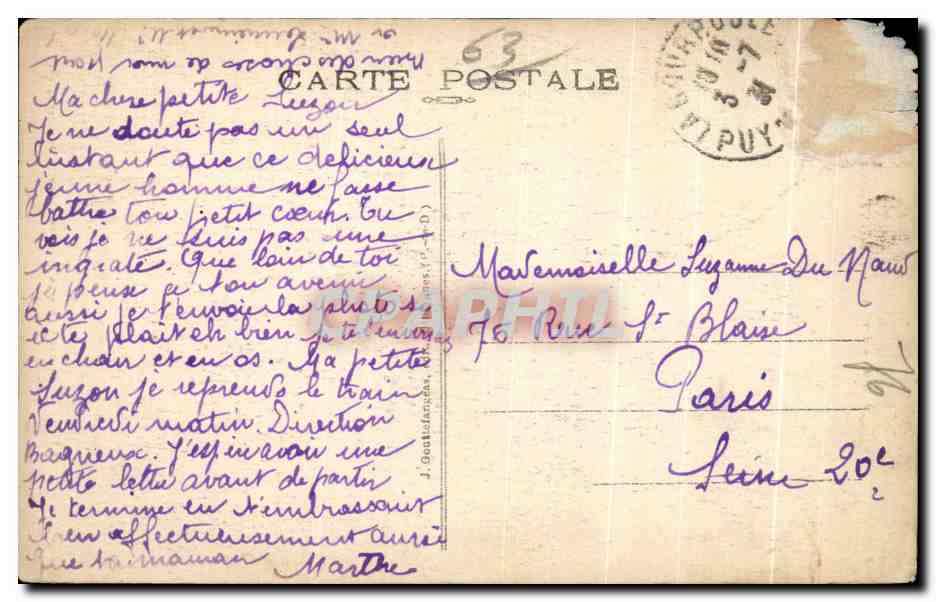 63
CARTE POSTALE
bien des choses de mon
a Mr
LA BOURBOULE
3 -7 31
PUY
Ma chere petite Suzon
Je ne doute pas un seul
instant que ce deficieux
jeune homme ne fasse
battre ton petit cœur. Tu
vois je ne suis pas une
ingrate. Que loin de toi
je pense a ton avenir
aussi je t'envoi la photo s
il te plait eh bien je te l'enverrai
en chair et en os. Ma petite
Suzon je reprends le train
Vendredi matin. Direction
Bagneux. J'espère avoir une
petite lettre avant de partir
Je termine en t'embrassant
bien affectueusement ainsi
que ta maman Marthe
Mademoiselle Suzanne Du
76 Rue St Blaise
Paris
Seine 20e
J. Gouttefangeas,
CPAPHIL